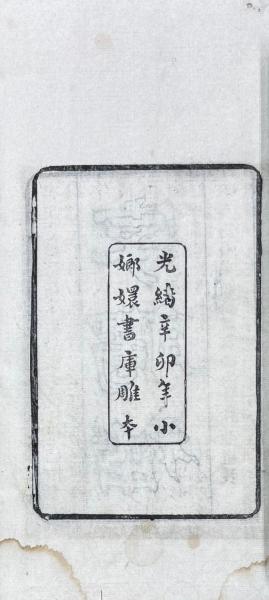 光緖辛卯年小
嫏嬛書庫雕本